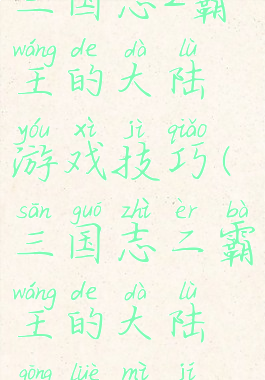 三国志二霸
wáng de dà lù
王的大陆
yóu xì jì qiǎo
游戏技巧(
sān guó zhì èr bà
三国志二霸
wáng de dà lù
王的大陆
gōng lüè mì jí